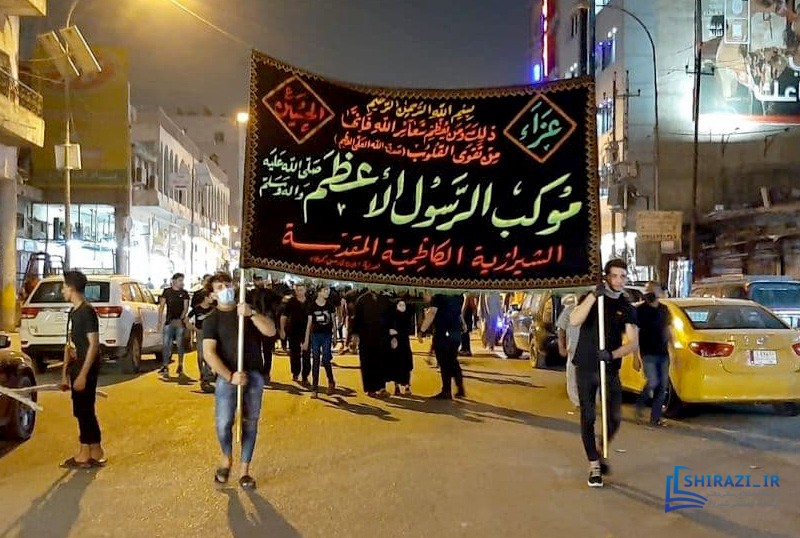 بسم الله الرحمن الرحيم
ذلك ومن يعظم شعائر الله فإنها
من تقوى القلوب (صدق الله العلي العظيم)
عزاء
الحسين ع
موكب الرسول الأعظم صلى الله عليه وآله وسلم
الشيرازية الكاظمية المقدسة
SHIRAZI_IR